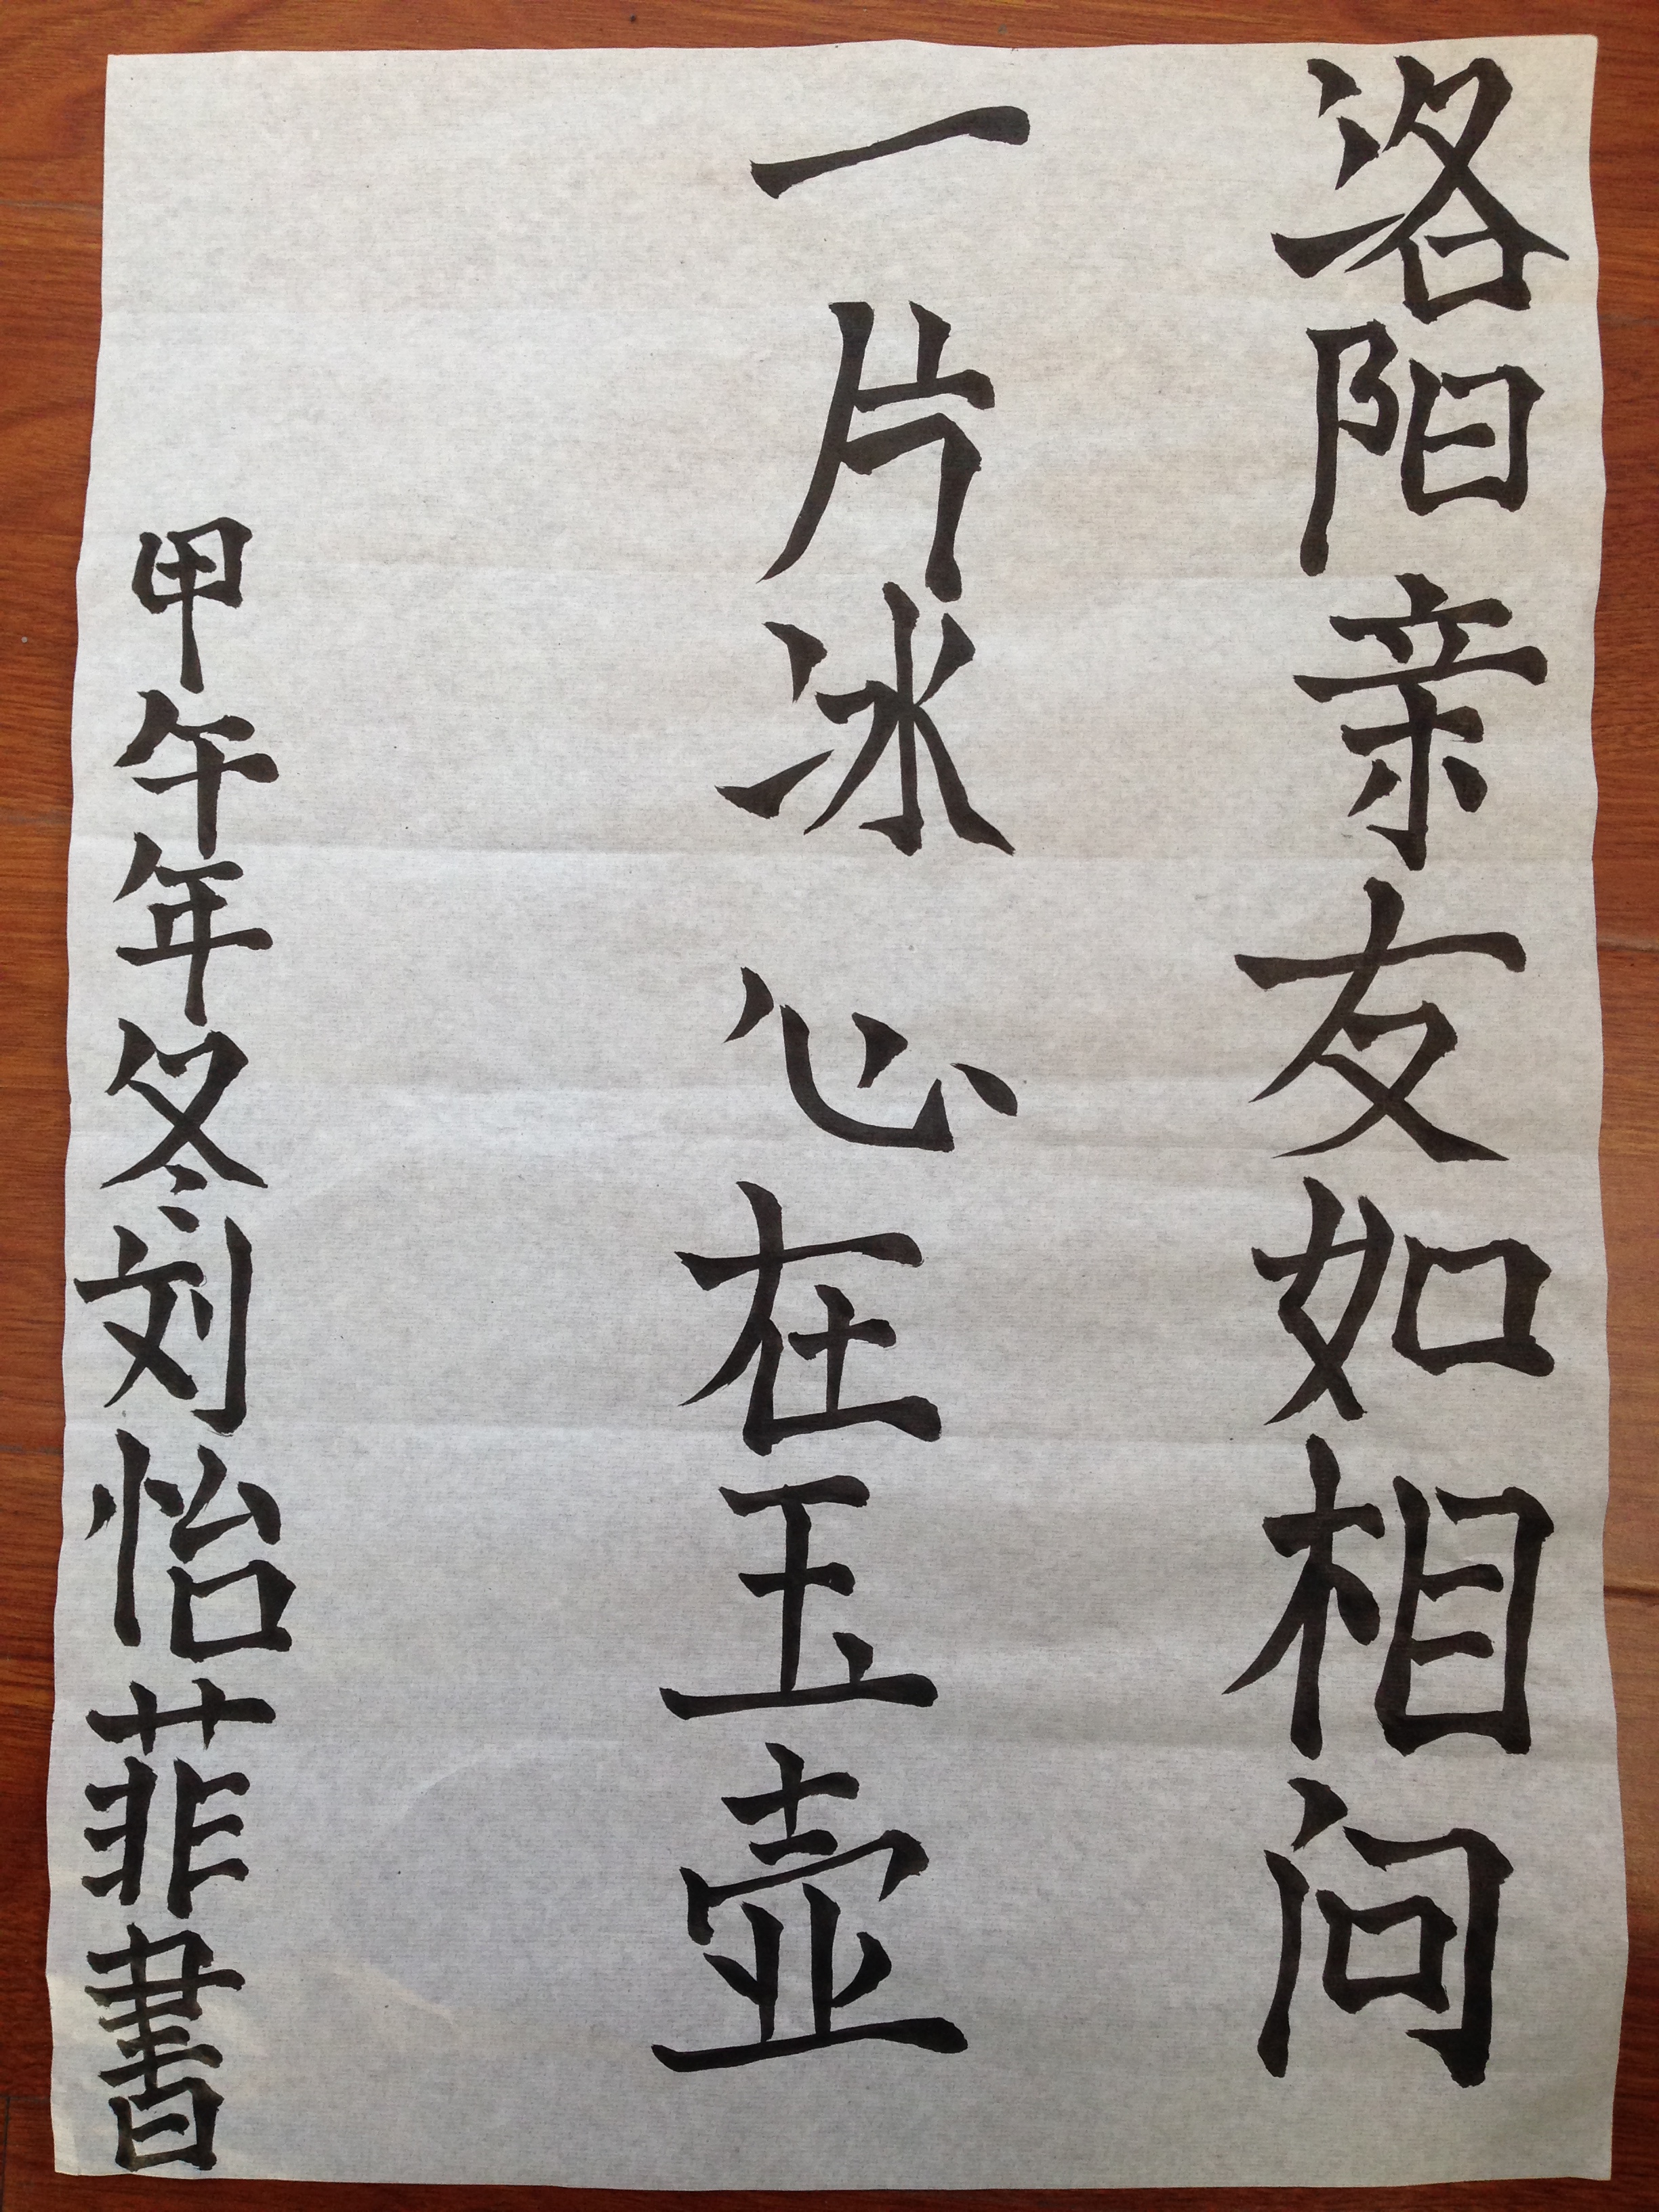 洛阳亲友如相问
一片冰心在玉壶
甲午年冬刘怡菲書